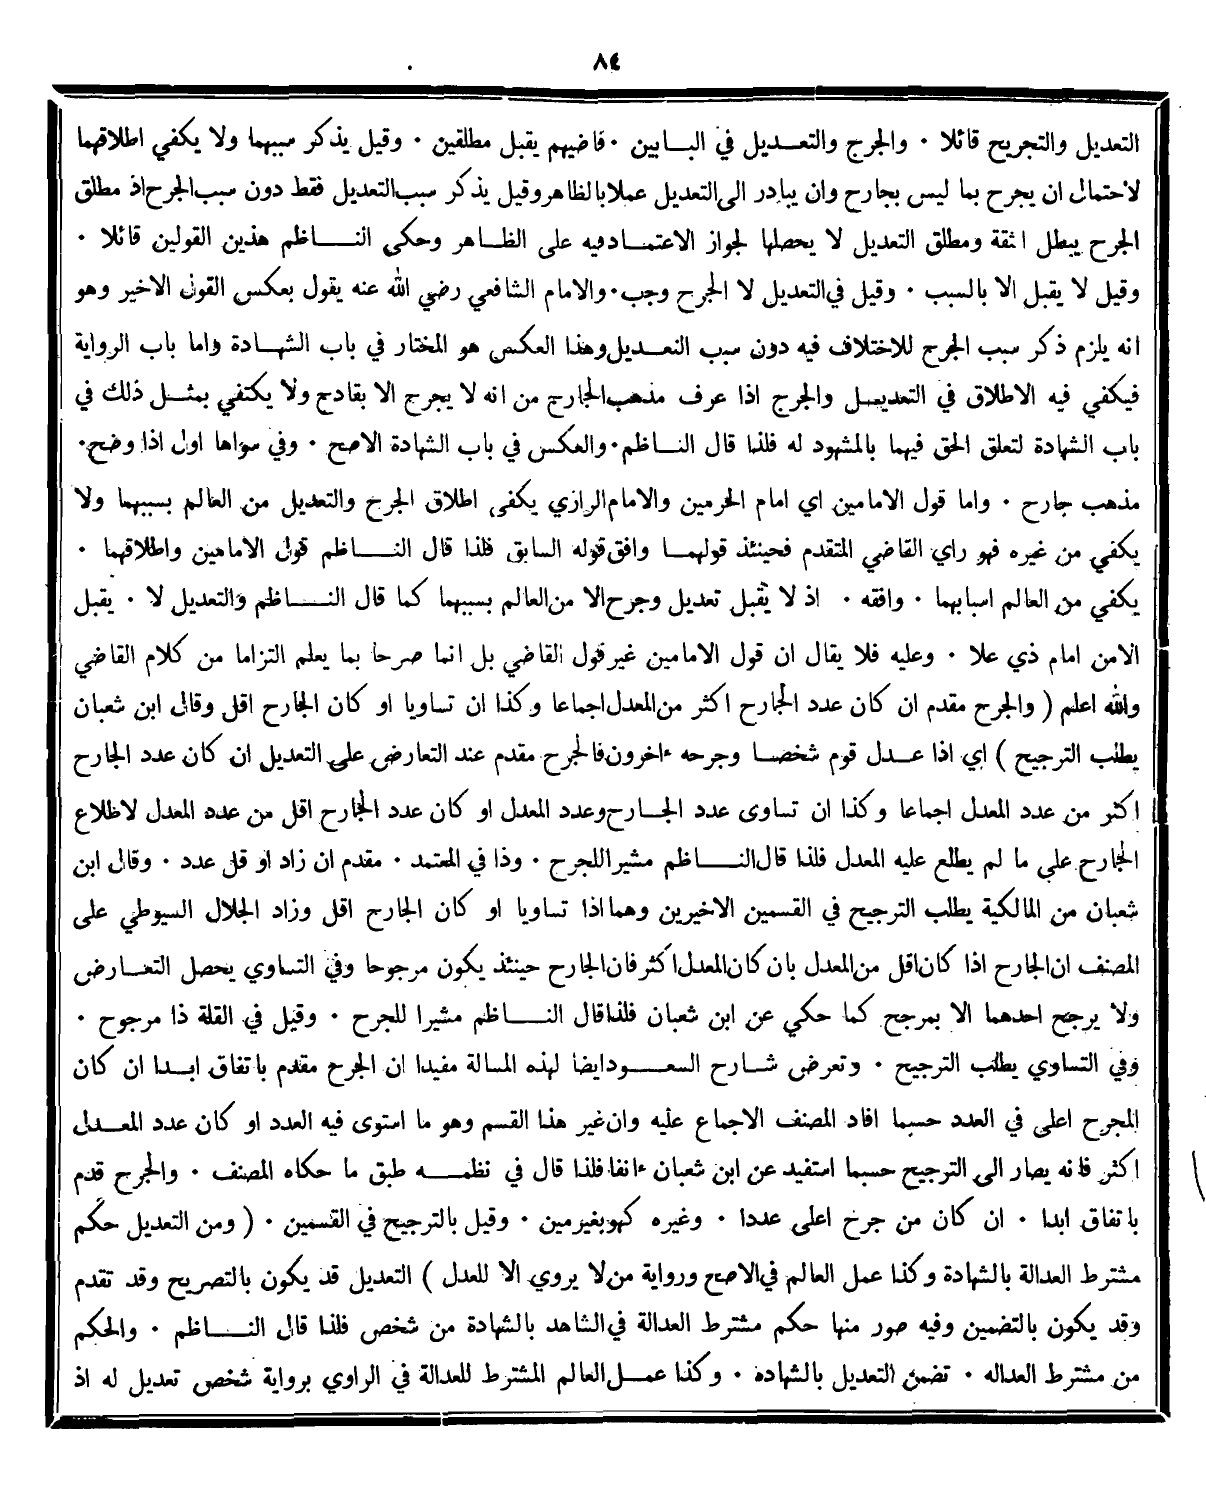 ٨٤
التعديل والتجريح قائلا • والجرح والتعديل في البابين • قاضيهم يقبل مطلقين • وقيل يذكر سببهما ولا يكفي اطلاقهما
لاحتمال ان يجرح بما ليس بجارح وان يبادر الى التعديل عملا بالظاهر وقيل يذكر سبب التعديل فقط دون سبب الجرح اذ مطلق
الجرح يبطل الثقة ومطلق التعديل لا يحصلها لجواز الاعتماد فيه على الظاهر وحكى الناظم هذين القولين قائلا •
وقيل لا يقبل الا بالسبب • وقيل في التعديل لا الجرح وجب • والامام الشافعي رضي الله عنه يقول بعكس القول الاخير وهو
انه يلزم ذكر سبب الجرح للاختلاف فيه دون سبب التعديل وهذا العكس هو المختار في باب الشهادة واما باب الرواية
فيكفي فيه الاطلاق في التعديل والجرح اذا عرف مذهب الجارح من انه لا يجرح الا بقادح ولا يكتفي بمثل ذلك في
باب الشهادة لتعلق الحق فيهما بالمشهود له فلذا قال الناظم • والعكس في باب الشهادة الاصح • وفي سواها اول اذا وضح •
مذهب جارح • واما قول الامامين اي امام الحرمين والامام الرازي يكفى اطلاق الجرح والتعديل من العالم بسببهما ولا
يكفي من غيره فهو راي القاضي المتقدم فحينئذ قولهما وافق قوله السابق فلذا قال الناظم قول الامامين واطلاقهما •
يكفي من العالم اسبابهما • وافقه • اذ لا يقبل تعديل وجرح الا من العالم بسببهما كما قال الناظم والتعديل لا • يقبل
الا من امام ذي علا • وعليه فلا يقال ان قول الامامين غير قول القاضي بل انما صرحا بما يعلم التزاما من كلام القاضي
والله اعلم ( والجرح مقدم ان كان عدد الجارح اكثر من المعدل اجماعا وكذا ان تساويا او كان الجارح اقل وقال ابن شعبان
يطلب الترجيح ) اي اذا عدل قوم شخصا وجرحه ءاخرون فالجرح مقدم عند التعارض على التعديل ان كان عدد الجارح
اكثر من عدد المعدل اجماعا وكذا ان تساوى عدد الجارح وعدد المعدل او كان عدد الجارح اقل من عدد المعدل لاطلاع
الجارح على ما لم يطلع عليه المعدل فلذا قال الناظم مشيرا للجرح • وذا في المعتمد • مقدم ان زاد او قل عدد • وقال ابن
شعبان من المالكية يطلب الترجيح في القسمين الاخيرين وهما اذا تساويا او كان الجارح اقل وزاد الجلال السيوطي على
المصنف ان الجارح اذا كان اقل من المعدل بان كان المعدل اكثر فان الجارح حينئذ يكون مرجوحا وفي التساوي يحصل التعارض
ولا يرجح احدهما الا بمرجح كما حكي عن ابن شعبان فلذا قال الناظم مشيرا للجرح • وقيل في القلة ذا مرجوح •
وفي التساوي يطلب الترجيح • وتعرض شارح السعود ايضا لهذه المسالة مفيدا ان الجرح مقدم باتفاق ابدا ان كان
المجرح اعلى في العدد حسبما افاد المصنف الاجماع عليه وان غير هذا القسم وهو ما استوى فيه العدد او كان عدد المعدل
اكثر فانه يصار الى الترجيح حسبما استفيد عن ابن شعبان ءانفا فلذا قال في نظمه طبق ما حكاه المصنف • والجرح قدم
باتفاق ابدا • ان كان من جرح اعلى عددا • وغيره كهو بغيرمين • وقيل بالترجيح في القسمين • ( ومن التعديل حكم
مشترط العدالة بالشهادة وكذا عمل العالم في الاصح ورواية من لا يروي الا للعدل ) التعديل قد يكون بالتصريح وقد تقدم
وقد يكون بالتضمين وفيه صور منها حكم مشترط العدالة في الشاهد بالشهادة من شخص فلذا قال الناظم • والحكم
من مشترط العداله • تضمن التعديل بالشهادة • وكذا عمل العالم المشترط للعدالة في الراوي برواية شخص تعديل له اذ